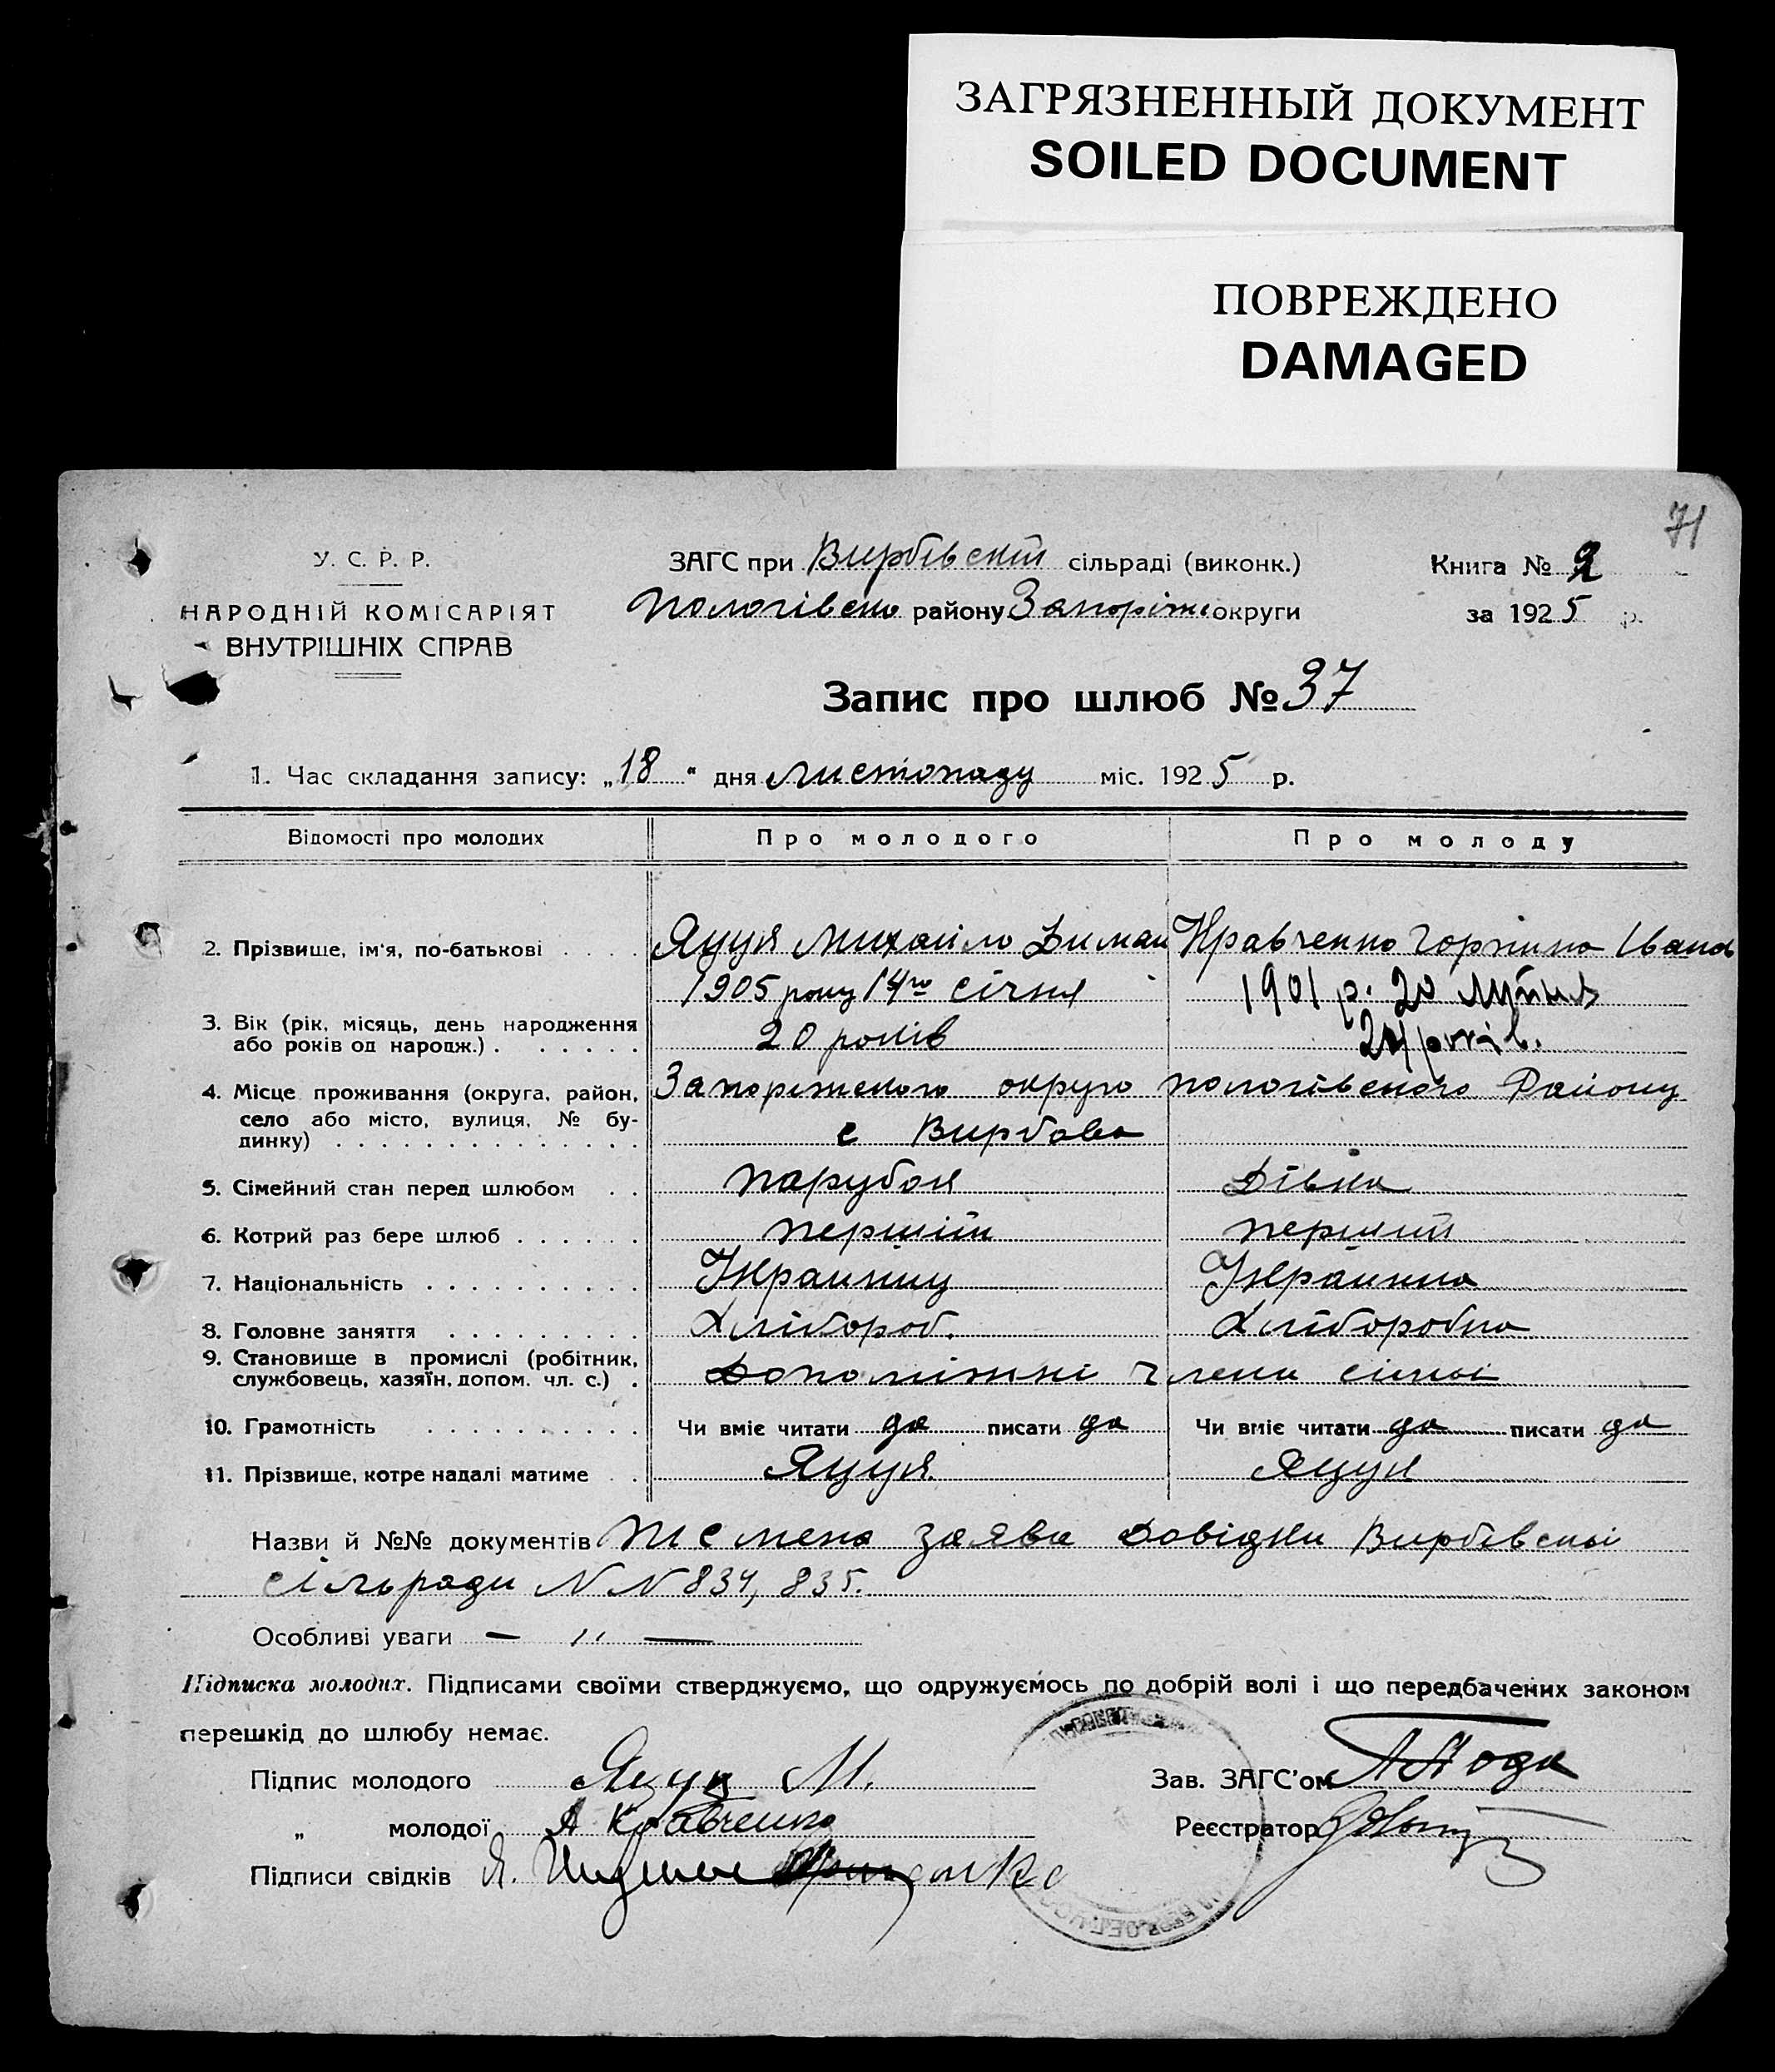 ЗАГРЯЗНЕННЫЙ ДОКУМЕНТ
SOILED DOCUMENT
ПОВРЕЖДЕНО
DAMAGED
71
У. С. Р. Р.
НАРОДНІЙ КОМІСАРІЯТ
ВНУТРІШНІХ СПРАВ
ЗАГС при Вирбівскій сільраді (виконк.)
Пологівско району Запоріж округи
Книга № 2
за 1925 р.
Запис про шлюб № 37
1. Час складання запису: „18“ дня листопаду міс. 1925 р.
Відомості про молодих Про молодого Про молоду
2. Прізвище, ім'я, по-батькові . . . . Яцуя Михайло Диман Кравченко Горпина Іванов
1905 року 14го січня 1901 р. 20
3. Вік (рік, місяць, день народження
або років од народж.) . . . . . . 20 років 24 років.
4. Місце проживання (округа, район, Запоріжского округо пологівского Району
село або місто, вулиця, № бу-
динку) . . . . . . . . . . . . . . с Вирбова
5. Сімейний стан перед шлюбом . . парубок Дівка
6. Котрий раз бере шлюб . . . . . . першій перший
7. Національність . . . . . . . . . . Україниц Українка
8. Головне заняття . . . . . . . . . Хлібороб. Хліборобка
9. Становище в промислі (робітник,
службовець, хазяїн, допом. чл. с.) . Допоміжні члени сімьі
10. Грамотність . . . . . . . . . . Чи вміє читати да писати да Чи вміє читати да писати да
11. Прізвище, котре надалі матиме . . Яцуя Яцуя
Назви й №№ документів заява довідки Вирбівскоі
сільради N N 834, 835.
Особливі уваги — " —
Підписка молодих. Підписами своїми стверджуємо, що одружуємось по добрій волі і що передбачених законом
перешкід до шлюбу немає.
Підпис молодого Яцуя М. Зав. ЗАГС'ом
„ молодої А Кравченко Реєстратор
Підписи свідків